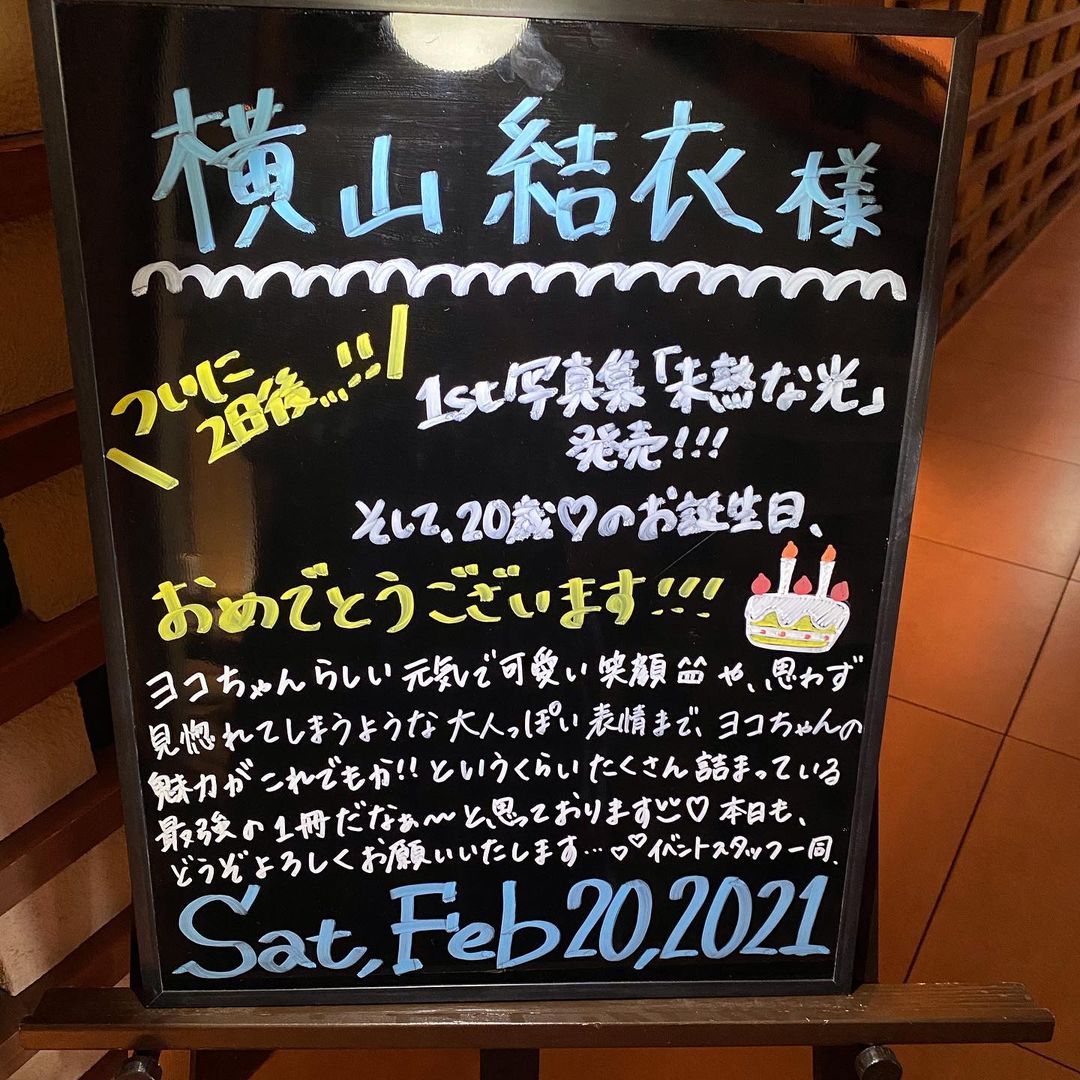 横山結衣様
ついに
2日後...!!
1st写真集「未熟な光」
発売!!!
そして、20歳♡のお誕生日、
おめでとうございます!!!
ヨコちゃんらしい元気で可愛い笑顔や、思わず
見惚れてしまうような大人っぽい表情まで、ヨコちゃんの
魅力がこれでもか!!というくらいたくさん詰まっている
最強の1冊だなぁ〜と、思っております♡本日も、
どうぞよろしくお願いいたします…♡♡イベントスタッフ一同.
Sat,Feb20,2021